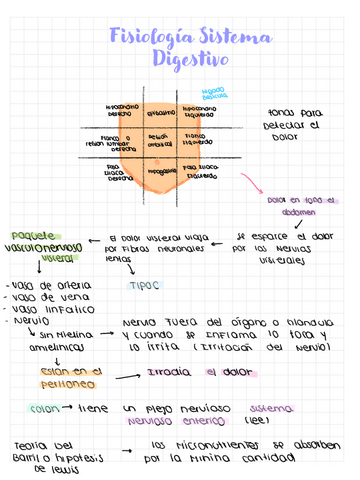 Fisiología Sistema
Digestivo
Hígado
Hipocondrio Derecho
Epigastrio
Hipocondrio Izquierdo
Flanco o región lumbar derecha
Región umbilical
Flanco Izquierdo
Fosa Iliaca Derecha
Hipogastrio
Fosa Iliaca Izquierda
zonas para
detectar el
dolor
Dolor en todo el
abdomen
se esparce el dolor
por los nervios
viscerales
El dolor visceral viaja
por fibras neuronales
lentas
TIPO C
paquete
vasculonervioso
visceral
- vaso de arteria
- vaso de vena
- vaso linfatico
- nervio
sin mielina
amielinicas
Nervio fuera del órgano o glandula
y cuando se inflama lo toca y
lo irrita (Irritación del nervio)
Están en el
peritoneo
Irradia el dolor
colon → tiene un plejo nervioso sistema
nervioso enterico (lee)
Teoría del
Barril o hipotesis
de lewis
los micronutrientes se absorben
por la minina cantidad